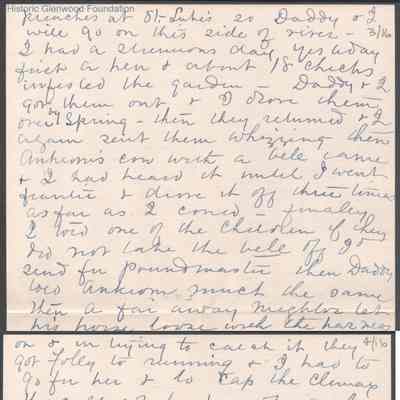 Historic Glenwood Foundation
preaches at St. Lukes so Daddy & I
will go on this side of river – 3/16
I had a strenuous day yesterday
first a hen & about 18 chicks
infested the garden – Daddy & I
got them out & I drove them
over by Spring – then they returned & I
again sent them whizzing then
Ankroms cow with a bell came
& I had heard it until I went
frantic & drove it off three times
as far as I could – finaley
I told one of the children if they
did not take the bell off I'd
send for poundmaster then Daddy
told Ankrom much the same
then a far away neighbor let
his horse loose with the harness
on & in trying to catch it they 4/16
got Folly to running & I had to
go for her & to cap the climax